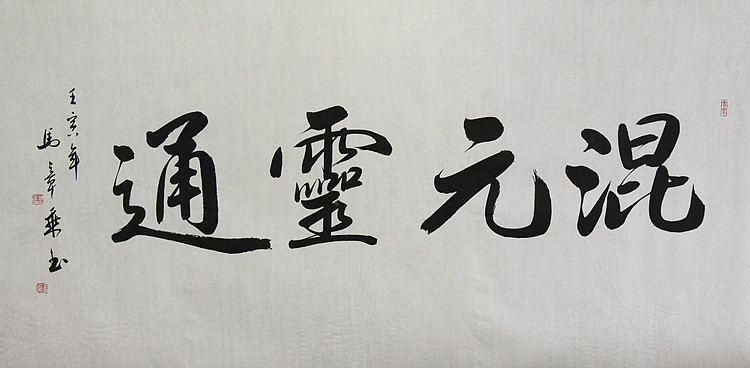 混元靈通
壬寅年
馬章乘书